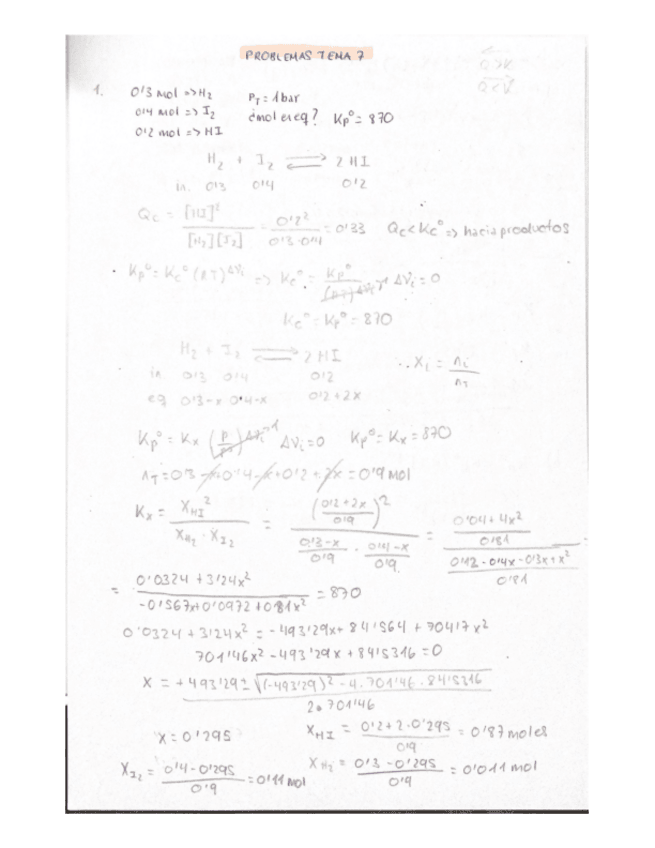 PROBLEMAS TEMA 7
1. 0'3 mol => H₂ P_T = 1 bar
0'4 mol => I₂ ¿mol en eq? Kp° = 870
0'2 mol => HI
H₂ + I₂ ⇌ 2 HI
in. 0'3 0'4 0'2
Qc = [HI]² / [H₂][I₂] = 0'2² / 0'3·0'4 = 0'33 Qc < Kc° => hacia productos
Kp° = Kc° (RT)^Δνi => Kc° = Kp° / (RT)^Δνi 1 Δνi = 0
Kc° = Kp° = 870
H₂ + I₂ ⇌ 2 HI ∴ Xi = ni / nT
in. 0'3 0'4 0'2
eq 0'3-x 0'4-x 0'2+2x
Kp° = Kx (P/P°)^Δνi 1 Δνi = 0 Kp° = Kx = 870
nT = 0'3 - x + 0'4 - x + 0'2 + 2x = 0'9 mol
Kx = X_HI² / X_H₂ · X_I₂ = ((0'2+2x)/0'9)² / (0'3-x)/0'9 · (0'4-x)/0'9 = (0'04+4x²)/0'81 / (0'12-0'4x-0'3x+x²)/0'81 =
= 0'0324 + 3'24x² / -0'567x+0'0972+0'81x² = 870
0'0324 + 3'24x² = -493'29x + 84'564 + 704'7x²
701'46x² - 493'29x + 84'5316 = 0
X = +493'29 ± √(-493'29)² - 4·701'46·84'5316 / 2·701'46
x = 0'295 X_HI = 0'2+2·0'295 / 0'9 = 0'87 moles
X_I₂ = 0'4-0'295 / 0'9 = 0'11 mol X_H₂ = 0'3-0'295 / 0'9 = 0'011 mol